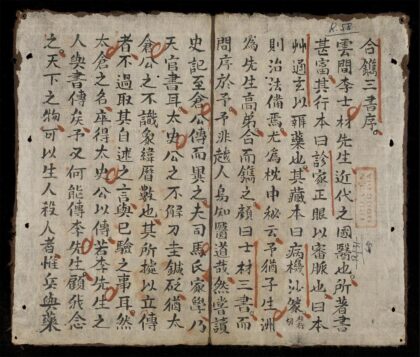 合鐫三書序
雲間李士材先生近代之國醫也所著書
甚富其行本曰診家正眼以審脈也曰本
艸通玄以辨藥也其藏本曰病機沙篆
則治法備焉尤為枕中秘云予猶子生洲
為先生高弟合而鐫之顏曰士材三書而
問序於予予非越人烏知醫道哉然嘗讀
史記至倉公傳而異之夫司馬氏家學乃
天官書耳太史公之不解刀圭鍼砭猶太
倉公之不識象緯曆數也其所據以立傳
者不過取其自述之言與已驗之事耳然
太倉之名庫得太史公以傳若李先生之
人與書傳矣予又何能傳李先生顧我念
之天下之物可以生人殺人者惟兵與藥